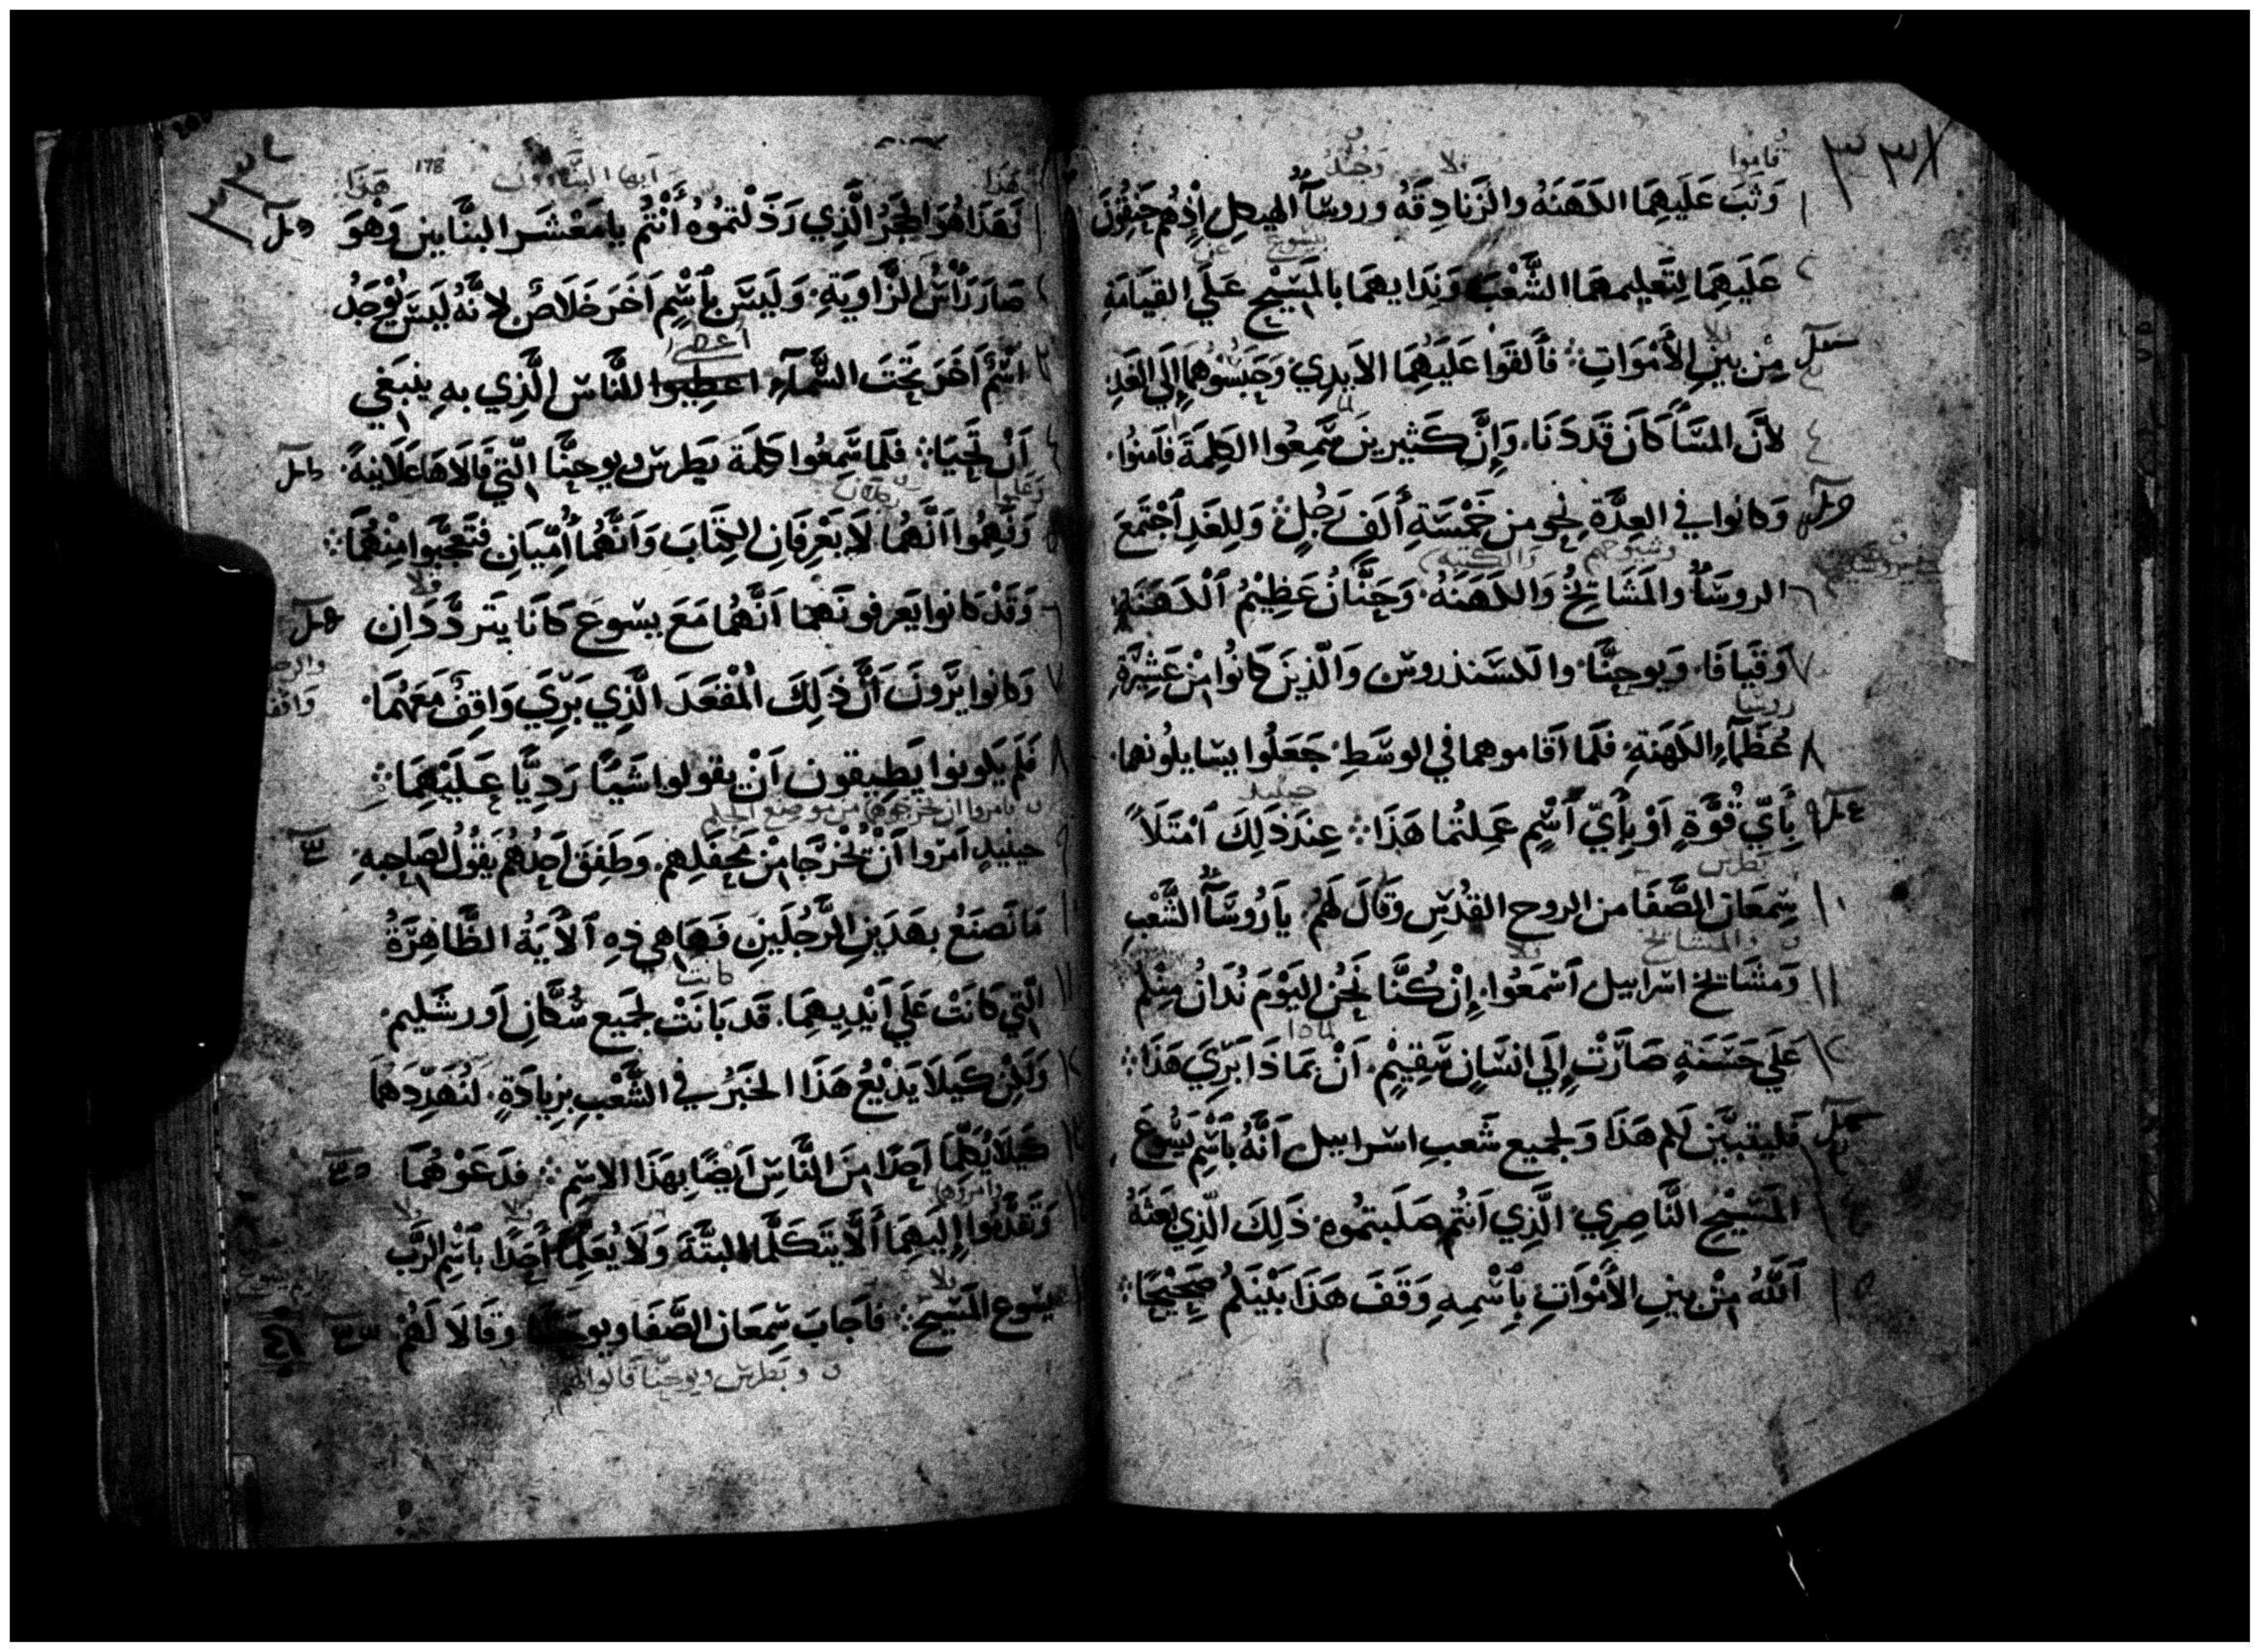 قاموا ولا وجند
وَثَبَ عَلَيهِمَا الكَهَنَهُ والزَنادِقَهُ وروسَآءُ الهيكل إِذهُم حَنِقُونَ
عَلَيهِمَا لِتَعليمهمَا الشَّعْبَ وَنِدَايهمَا بالمَسِيْح عَلَي القيَامَةِ
مِن بينِ الأَموَاتِ فأَلقَوا عَلَيهِمَا الايدِي وَحَبَسُوهُمَا إِلَي الغَدِ
لأَنَّ المسَآ كَانَ قَد دَنَا وَإِنَّ كَثيرينَ سَمِعُوا الكلِمَةَ فَامنُوا
وَكانوا في العِدَّةِ نحو من خَمْسَةِ أَلفَ رَجُلٍ وَلِلغَدِ اَجْتَمَعَ
وشيوخهم والكتبه
الروسَآءُ والمَشَايخُ وَالكَهَنَهُ وَحَنَّانُ عَظِيْمُ اَلكَهَنَةِ
وَقَيافَا وَيوحنَّا والكسَندروسَ وَالّذِينَ كَانُوا مِنْ عَشِيْرَةِ
روسا
عُظَمآءِ الكَهَنةِ فَلَمَا اَقاموهما في الوسَطِ جَعَلُوا يسَايلُونهما
حينيذ
بِأَيّ قُوَّةٍ اَوْ بِأَيّ اَسْمٍ عَمِلتُما هَذَا عِندَ ذَلِكَ اَمْتَلَأَ
بطرس
سِمعَان الصَّفَا من الروح القُدُس وَقَالَ لَهُم يا رُوسَآءُ الشَّعْبِ
والمشايخ
وَمَشَايخ اسراييل اَسْمَعُوا إِنْ كُنَّا نَحْنُ اليَوْمَ نُدَانُ مِنْكم
لماذا
عَلَي حَسَنَةٍ صَارَتْ إِلَي انسَانٍ سَقِيْمٍ اَنْ بمَاذَا بَرِيَ هَذَا
فَليتبيَّن لَكم هَذَا وَلجميع شَعبِ اسراييل اَنَّهُ بَاسْمِ يَسُوعَ
المَسِيْحِ النَّاصِرِي الَّذِي اَنتُم صَلَبتمُوه ذَلِكَ الّذِي بَعَثَهُ
اَللّٰهُ مِنْ بينِ الأَموَاتِ بِاَسْمِهِ وَقَفَ هَذَا بَيْنَكُم صَحِيْحًا
178 ايها البناوون هَذَا
فَهَذَا هُوَ الحَجَرُ الَّذِي رَذَلْتمُوهُ أَنْتُمْ يا مَعْشَر البنَّايين وَهْوَ
صَارَ رَأسَ الزَّاوِيَةِ وَلَيسَ باَسْمٍ اَخَرَ خَلَاصٌ لانَّهُ لَيسَ يُوْجَدُ
اعطي
اَسْمٌ اَخَرَ تَحْتَ السَّمآءِ اعطيوا للنَّاسِ الَّذِي بهِ ينبَغي
اَنْ نَحْيَا فَلَما سَمِعُوا كَلِمَة بَطرس ويوحنَّا الّتي قَالاهَا عَلاَنيةً
وَفَهِمُوا اَنَّهُمَا لَا يَعْرِفَانِ الكِتَابَ وَاَنَّهُمَا أُمّيَانِ فتَعَجَّبوا مِنْهُمَا
وَقَدْ كانوا يَعرفونَهمَا اَنَّهُمَا مَعَ يسوعَ كَانَا يَتردَّدَانِ
وَكانوا يَرَونَ اَنَّ ذَلِكَ المُقْعَدَ الَّذِي بَرِيَ وَاقِفٌ مَعَهُمَا
فَلَم يكونوا يَطِيقون اَنْ يقولوا شَيًا رَدِيًّا عَلَيْهِمَا
حينيذٍ اَمَرُوا اَنْ تُخْرَجَا مِنْ مَحْفَلِهِم وَطَفِقَ اَحدُهُم يَقُولُ لصَاحِبِهِ
مَا نَصنَعُ بهَذَينِ الرَّجُلَينِ فَهَا هِي ذِهِ اَلآيَةُ الظَّاهِرَةُ
كانت
الّتي كَانَتْ عَلَي اَيْدِيهِمَا قَد بَانَتْ لجَمِيع سُكَّانِ اَورشَليم
وَلَكِنْ كَيلَا يَذيْعَ هَذَا الخَبَرُ في الشَّعْبِ بزيادَةٍ لنُهَدِّدَهُمَا
كَيْلَا يُكَلِّمَا اَحَدًا مِنَ النَّاسِ اَيضًا بهَذَا الاسْمِ فدَعَوْهُمَا
وَتَقَدَّمُوا إِليهِمَا اَلَّا يَتَكَلَّمَا البتَّةَ وَلَا يُعَلِّمَا اَحَدًا باَسْمِ الرَّبّ
يسوع المَسِيح فاَجَابَ سِمعَان الصَّفَا ويوحنَّا وقَالَا لَهُمْ
وبَطرس ويوحنّا قالوا لهم